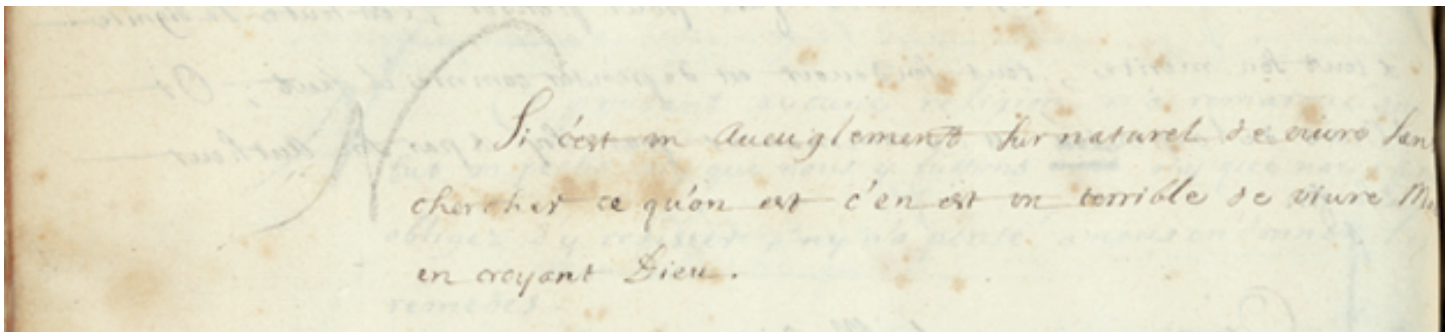 Si c'est vn Aueuglement sur naturel de viure san
chercher ce qu'on est c'en est vn terrible de viure M
en croyant Dieu.